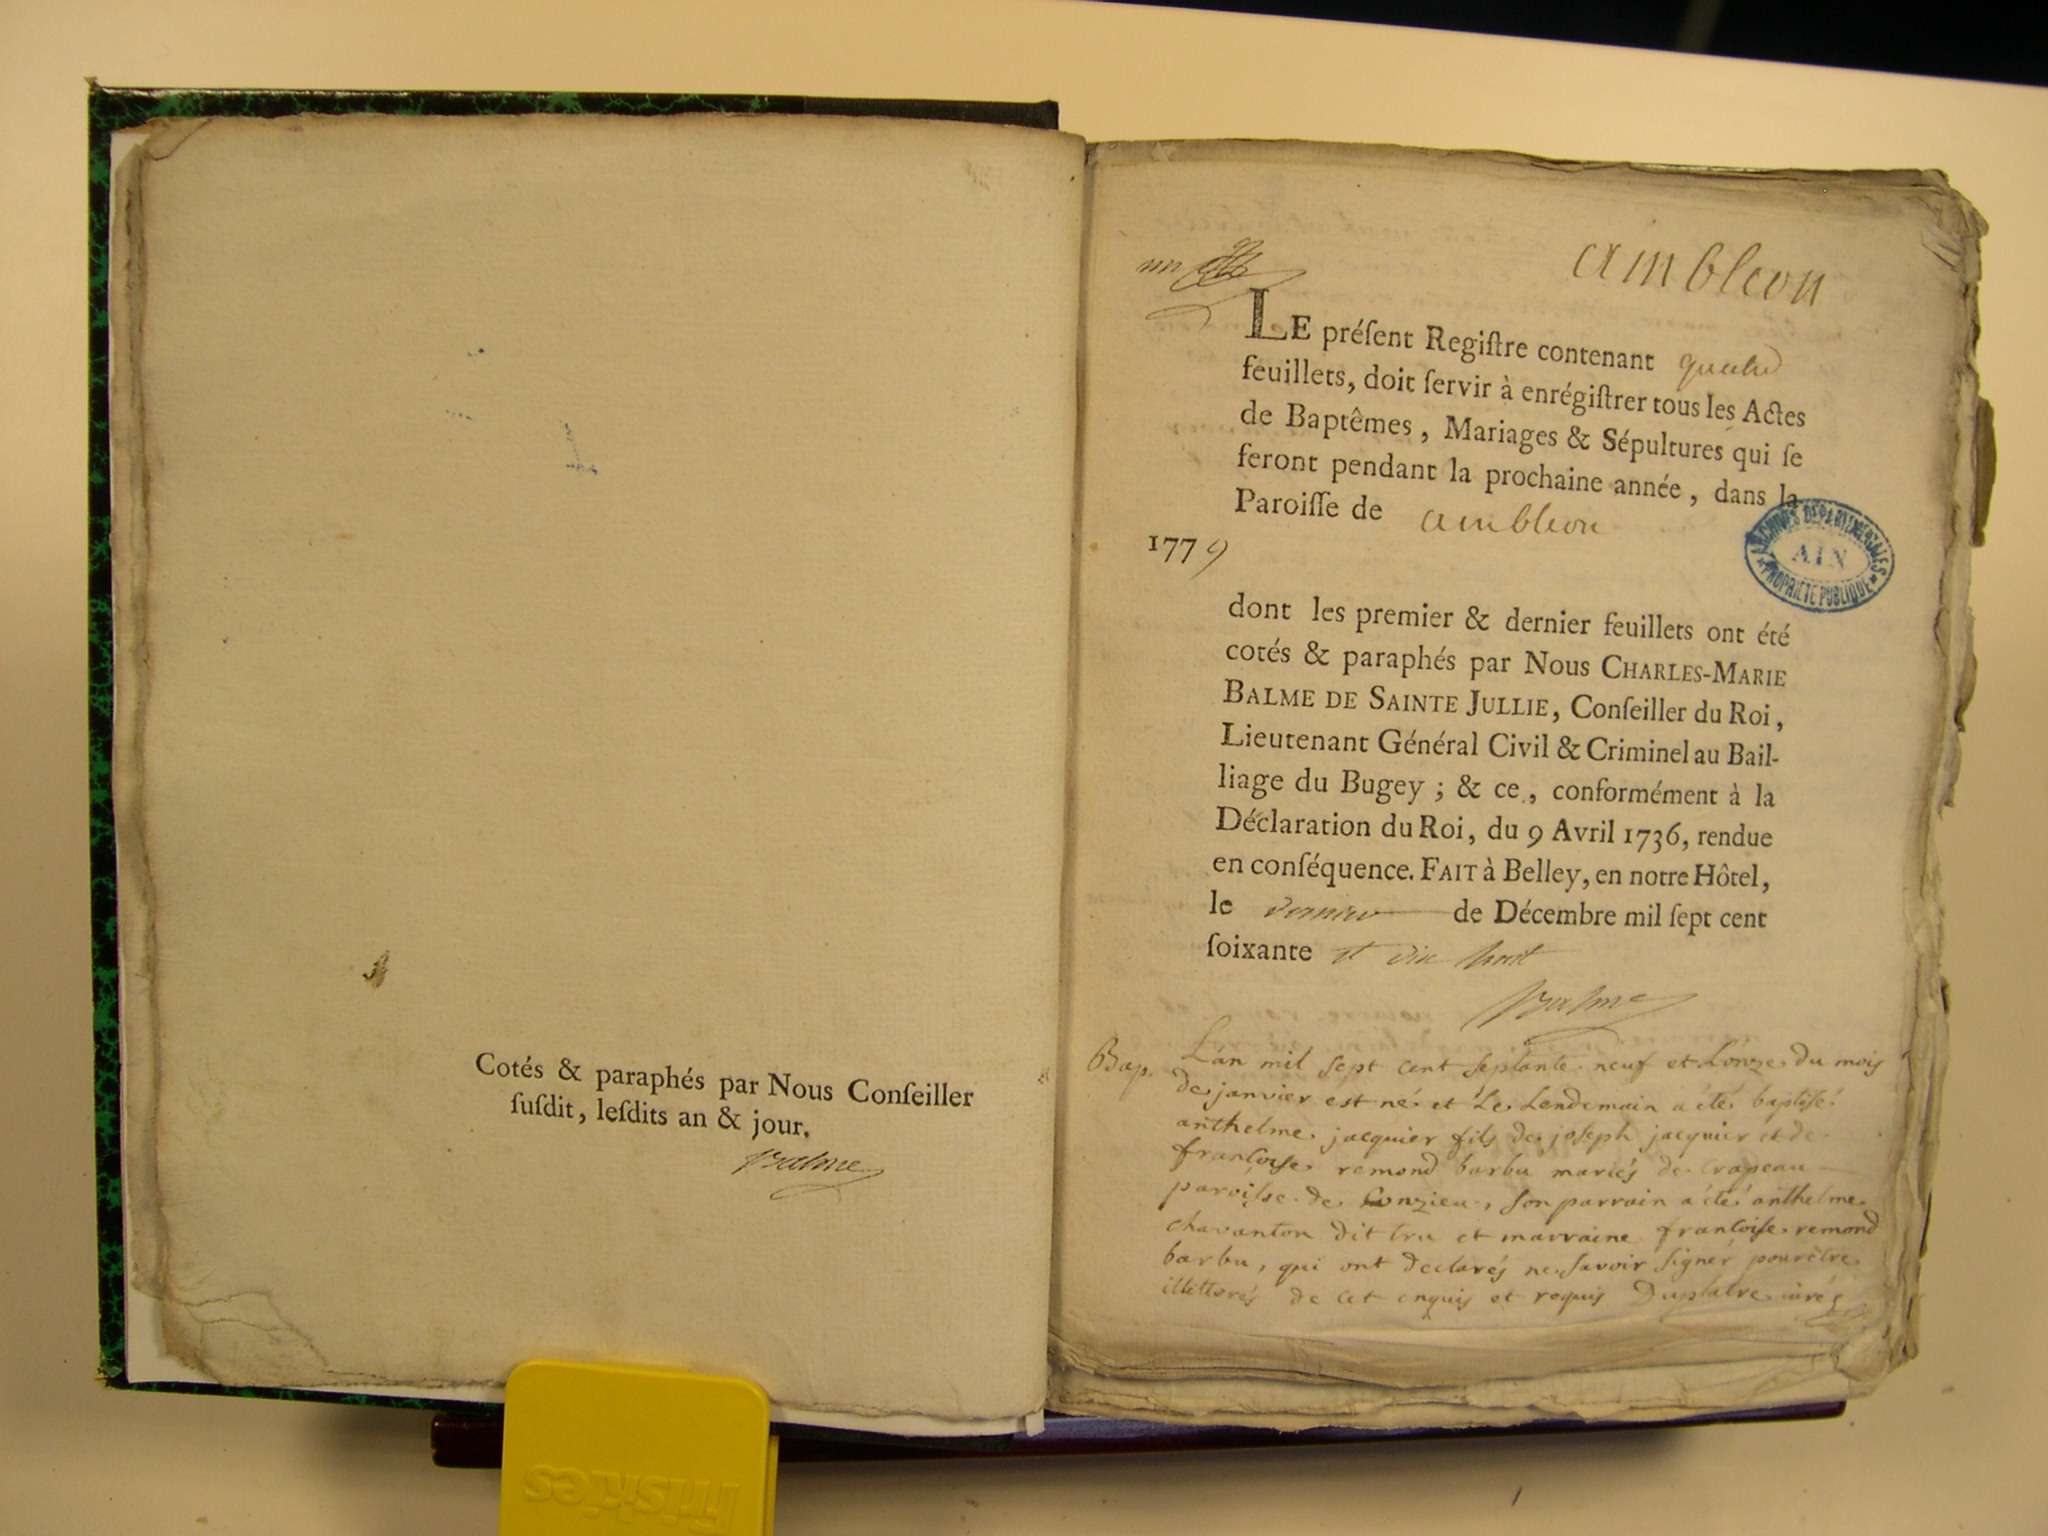 Cotés & paraphés par Nous Conſeiller
ſuſdit, leſdits an & jour.
Balme
un
ambleon
LE préſent Regiſtre contenant quatre
feuillets, doit ſervir à enrégiſtrer tous les Actes
de Baptêmes, Mariages & Sépultures qui ſe
feront pendant la prochaine année, dans la
Paroiſſe de ambleon
1779
ARCHIVES DÉPARTEMENTALES
AIN
PROPRIÉTÉ PUBLIQUE
dont les premier & dernier feuillets ont été
cotés & paraphés par Nous CHARLES-MARIE
BALME DE SAINTE JULLIE, Conſeiller du Roi,
Lieutenant Général Civil & Criminel au Bail-
liage du Bugey ; & ce, conformément à la
Déclaration du Roi, du 9 Avril 1736, rendue
en conſéquence. FAIT à Belley, en notre Hôtel,
le dernier de Décembre mil ſept cent
ſoixante et dix huit
Balme
Bap. L'an mil sept cent septante neuf et L'onze du mois
de janvier est né et Le Lendemain a été baptisé
anthelme jacquier fils de joseph jacquier et de
francoise remond barbu mariés de crapeau
paroisse de Conzieu, son parrain a été anthelme
chavanton dit tru et marraine francoise remond
barbu, qui ont declarés ne savoir signer pour être
illitterés de cet enquis et requis Duplatre curé